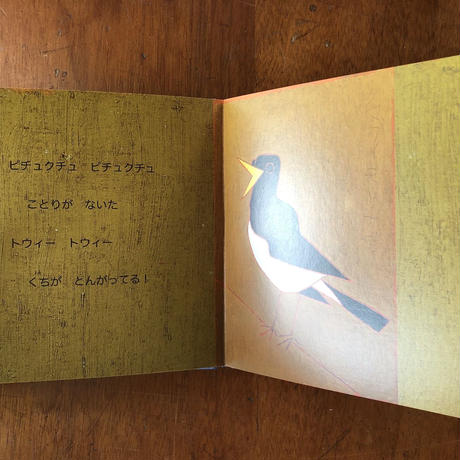 ピチュクチュ　ピチュクチュ
ことりが　ないた
トウィー　トウィー
くちが　とんがってる！